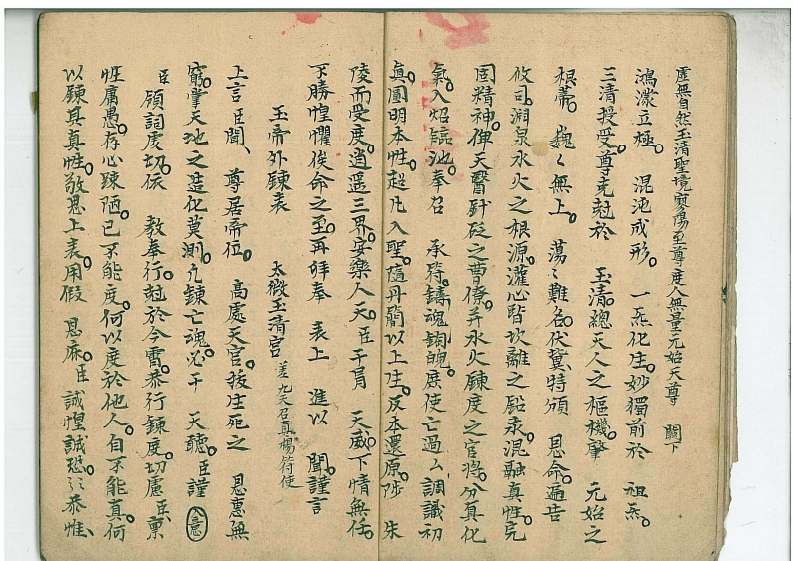 虛無自然玉清聖境寥陽至尊度人無量元始天尊　闕下
鴻濛立極　混沌成形　一炁化生。妙獨前於　祖炁。
三清授受。尊克冠於　玉清。總天人之樞機。肇　元始之
根蒂。巍々無上。蕩々難名。伏冀特頒　恩命。遍告
攸司。淵泉水火之根源。灌心皆坎離之鉛汞。混融真性。完
固精神。俾天醫針砭之曹僚。并水火鍊度之官將。分真化
氣。入焰臨池。奉召　承符。鑄魂鍘魄。庶使亡過厶調識初
眞。圓明本性。超凡入聖。隨丹簡以上生。反本還原。陟　朱
陵而受度。逍遥三界。安樂人天。臣干冒　天威。下情無任。
不勝惶懼俟命之至。再拜奉　表上　進以　聞。謹言
玉帝外鍊表　太微玉清宮　差九天召真楊符使
上言臣聞、　尊居帝位。　高處天宮。拔生死之　恩惠無
窮。掌天地之造化莫測。凡鍊亡魂。必干　天聽。臣謹　入意
臣　領詞虔切。依　教奉行。越於今霄。恭行鍊度。切慮臣稟
性庸愚。存心踈陋。已不能度。何以度於他人。自不能真。何
以鍊其真性。敬思上表。用假　恩庥。臣　誠惶誠恐々恭惟、